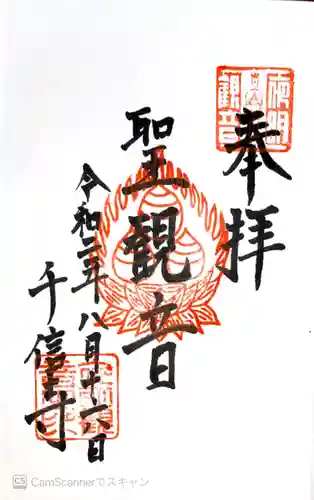 奉拝
聖観音
令和二年八月十六日
千信寺
CS CamScannerでスキャン